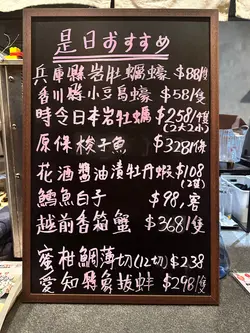 是日おすすめ
兵庫縣岩牡蠣蠔 $88/隻
香川縣小豆島蠔 $58/隻
時令日本岩牡蠣 $258/4隻
(2大2小)
原條梭子魚 $328/條
花酒醬油漬牡丹蝦 $108
(2隻)
鱈魚白子 $98.客
越前香箱蟹 $368/隻
蜜柑鯛薄切(12切) $238
愛知縣象拔蚌 $298/隻